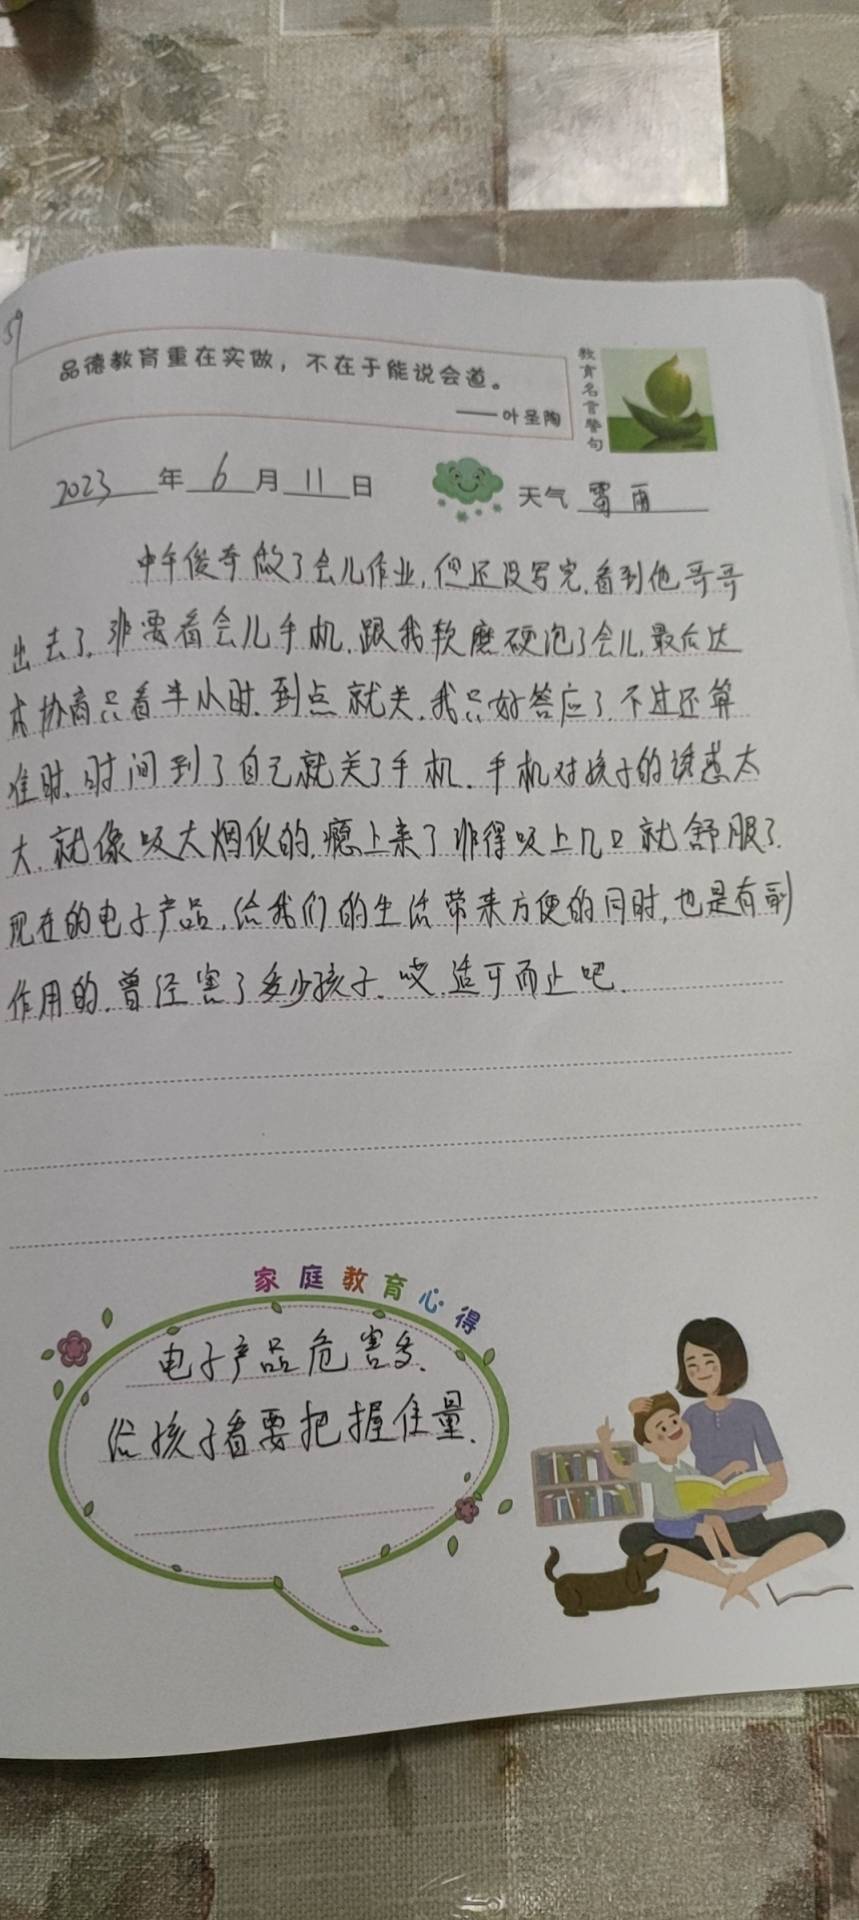 59
品德教育重在实做，不在于能说会道。
——叶圣陶
教育名言警句
2023年6月11日 天气 雷雨
中午俊奇做了会儿作业,但还没写完,看到他哥哥
出去了,非要看会儿手机,跟我软磨硬泡了会儿,最后达
成协商只看半小时,到点就关,我只好答应了,不过还算
准时,时间到了自己就关了手机.手机对孩子的诱惑太
大,就像吸大烟似的,瘾上来了非得吸上几口就舒服了.
现在的电子产品,给我们的生活带来方便的同时,也是有副
作用的,曾经害了多少孩子.哎,适可而止吧.
家庭教育心得
电子产品危害多.
给孩子看要把握住量.